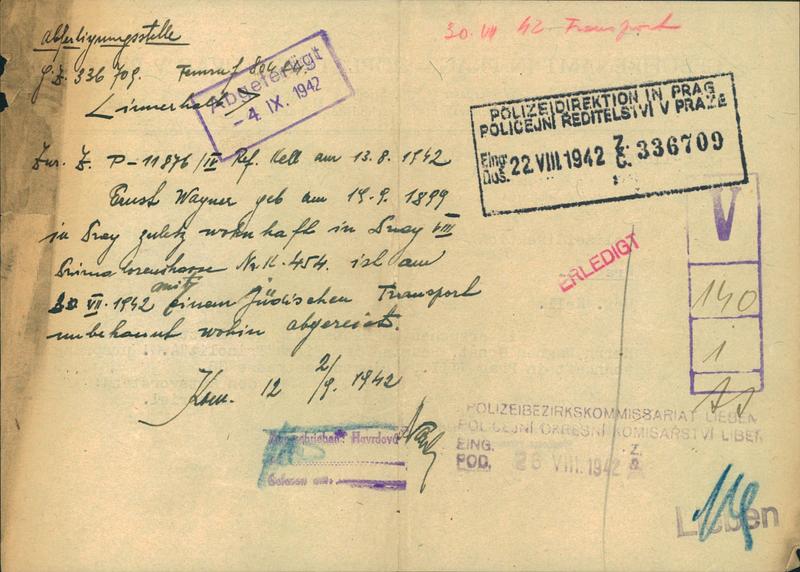 30 VII 42 Transport
Abfertigungsstelle
G.Z. 336709. Fernruf 804
Abgefertigt
- 4. IX. 1942
POLIZEIDIREKTION IN PRAG
POLICEJNÍ ŘEDITELSTVÍ V PRAZE
Eing.
Doš. 22 VIII 1942 Z. Č. 336709
Zur. Z. P-11876/IV Ref. Kell am 13.8.1942
Ernst Wagner geb am 19.9.1899
in Prag zuletz wohnhaft in Prag VIII
Nr. K. 454. ist am
30 VII. 1942 mit einem Jüdischen Transport
unbekannt wohin abgereist.
ERLEDIGT
V
140
1
Kom. 12 2/9. 1942
geschrieben: Havrdová
Gelesen am:
POLIZEIBEZIRKSKOMMISSARIAT LIEBEN
POLICEJNÍ OKRESNÍ KOMISAŘSTVÍ LIBEŇ
EING.
POD. 26 VIII. 1942 Z. Č.
Lieben